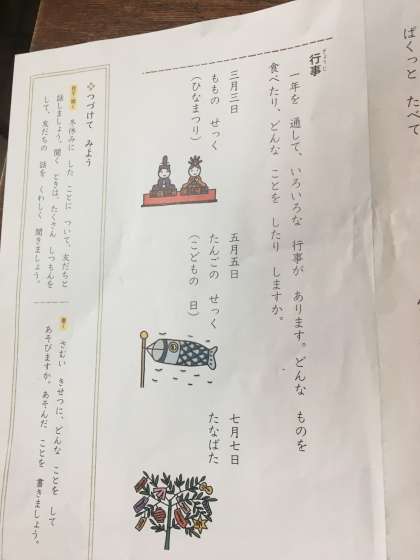 ぱくっと たべて
行事
ぎょうじ
一年を 通して、いろいろな 行事が あります。どんな ものを
食べたり、どんな ことを したり しますか。
三月三日
ももの せっく
（ひなまつり）
五月五日
たんごの せっく
（こどもの 日）
七月七日
たなばた
つづけて みよう
話す・聞く
冬休みに した ことに ついて、友だちと
話しましょう。聞く ときは、たくさん しつもんを
して、友だちの 話を くわしく 聞きましょう。
書く
さむい きせつに、どんな ことを して
あそびますか。あそんだ ことを 書きましょう。